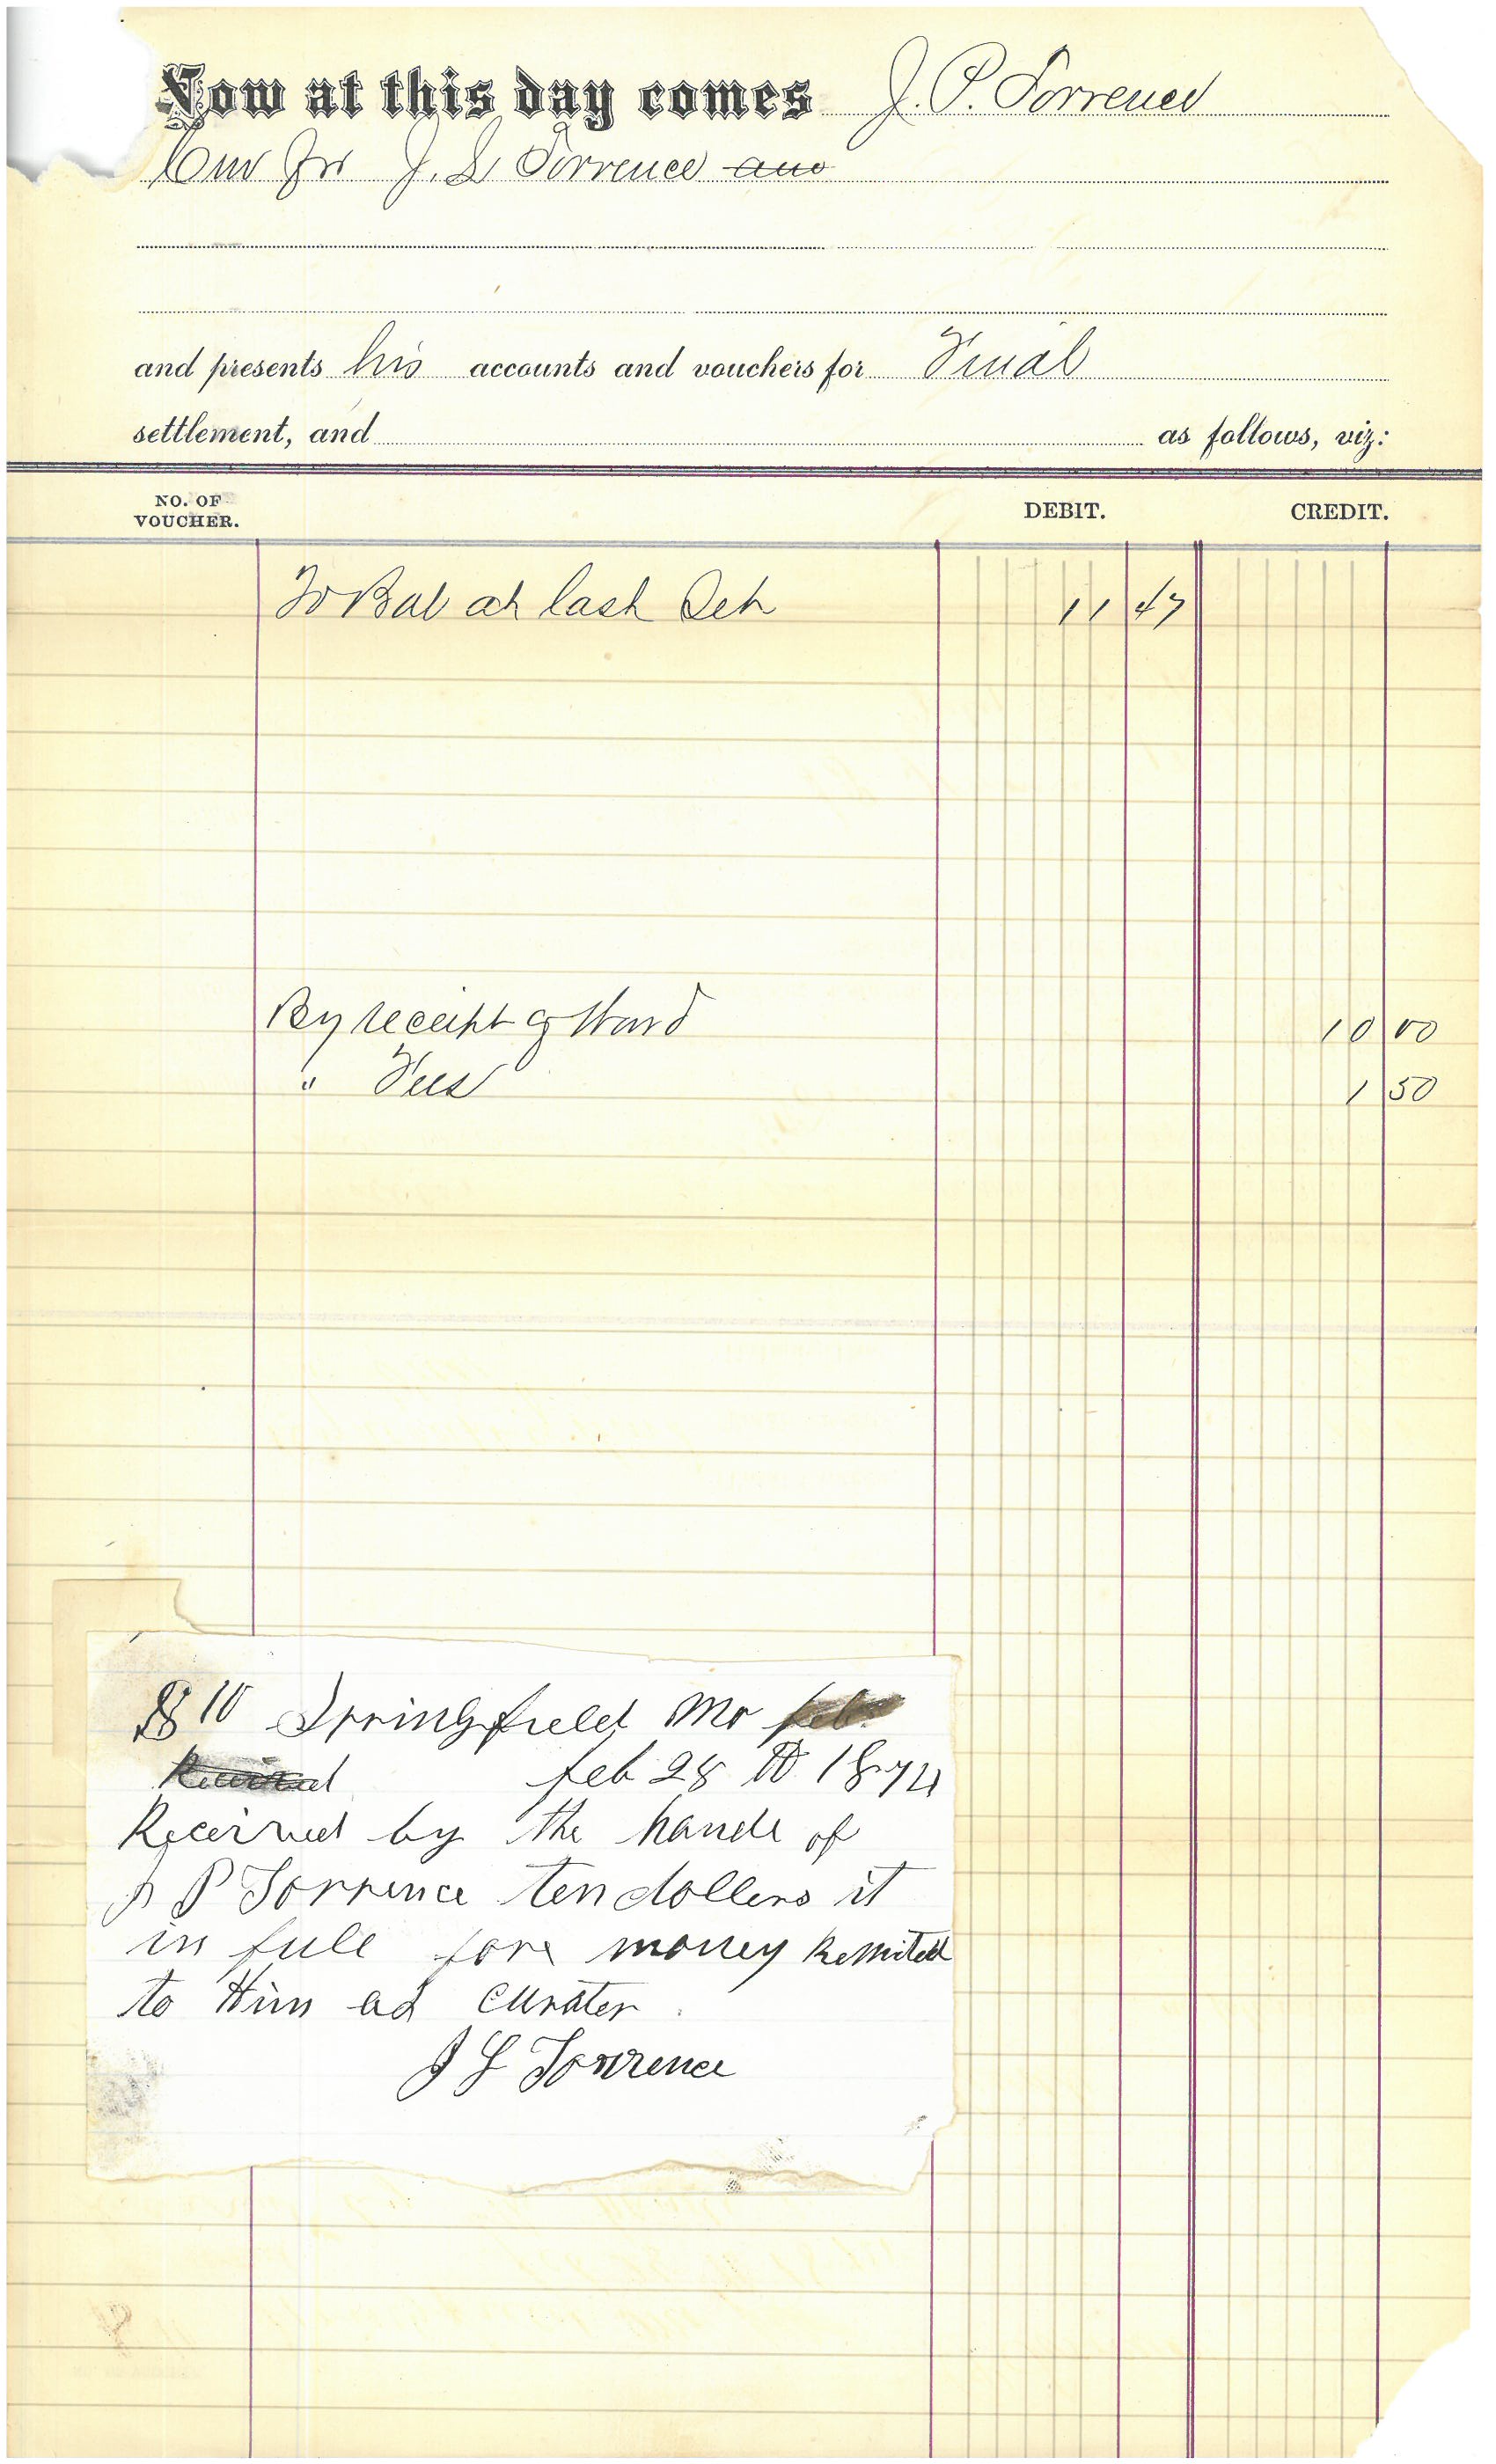 Now at this day comes J. P. Torrence
Cur for J. L Torrence and
and presents his accounts and vouchers for Final
settlement, and as follows, viz:
NO. OF VOUCHER. DEBIT. CREDIT.
To Bal at last Set 11 47
By receipt of Ward 10 00
" Fees 1 50
$10 Springfield Mo feb
Received feb 28 th 1874
Received by the hande of
J P Torrence ten dollers it
in full fore money Remited
to Him as curater
J L Torrence